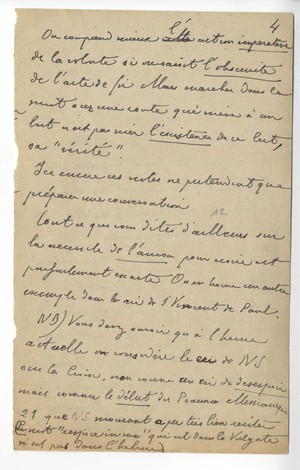 4
On comprend mieux cette action impérative
de la volonté si on saisit l'obscurité
de l'acte de foi Mais marcher dans la
nuit sur une route qui mène à un
but n'est pas nier l'existence de ce but,
sa "vérité"
Ici encore ces notes ne prétendent que
préparer une conversation
12
Tout ce que vous dites d'ailleurs sur
la nécessité de l'amour pour est
parfaitement exacte On en trouve un autre
exemple dans la vie de St Vincent de Paul.
NB) Vous devez savoir qu'à l'heure
actuelle on considère le cri de NS
sur la Croix, non comme un cri de désespoir
mais comme le début du Psaume Messianique
21 que NS mourant a pu très bien réciter
Le mot "respice in me" qui est dans la Vulgate
n'est pas dans l'hébreu)